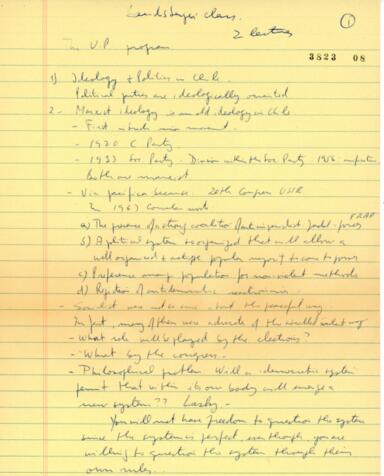 class.
2 lectures
1
The U.P. program.
3823 08
1) Ideology & Politics in Chile.
Political parties are ideologically oriented
2- Marxist ideology is an old ideology in Chile
- First
- 1920 C Party
- 1933 Soc Party - Division within the Soc Party 1956
Both are marxist
- Via pacifica 20th Congress USSR
In 1967
a) The presence of a strong coalition of
FRAP
b) A political system so organized that will allow a
well organized & popular to come to power
c) Preference among population for non violent methods
d) Rejection of
- Socialist was not so sure about the peaceful way.
In fact, many of them were advocate of the
- What role will be played by the elections?
- What by the congress.
- Philosophical problem. Will a democratic system
permit that within its own body will emerge a
new system?? Lasky -
You will not have freedom to question the system
since the system is perfect, even though you are
willing to question the system through their
own rules...